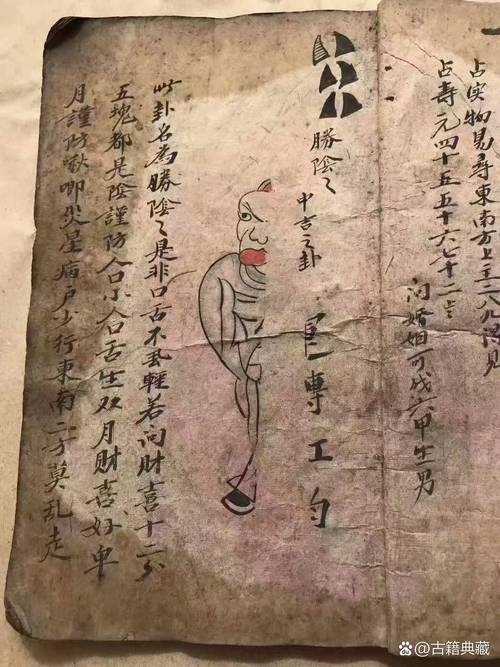 占实物易尋東南方上主一八九得財
占壽元四十五五十六七十二止
问婚姻可成六甲生男
勝陰〻
中吉之卦
專工勺
此卦名為勝陰〻是非口舌不乱輕若问财喜十二分
五塊都是陰謹防人口小口舌生双月财喜好单
月謹防啾唧災星病户少行東南二方莫乱走
古籍典藏